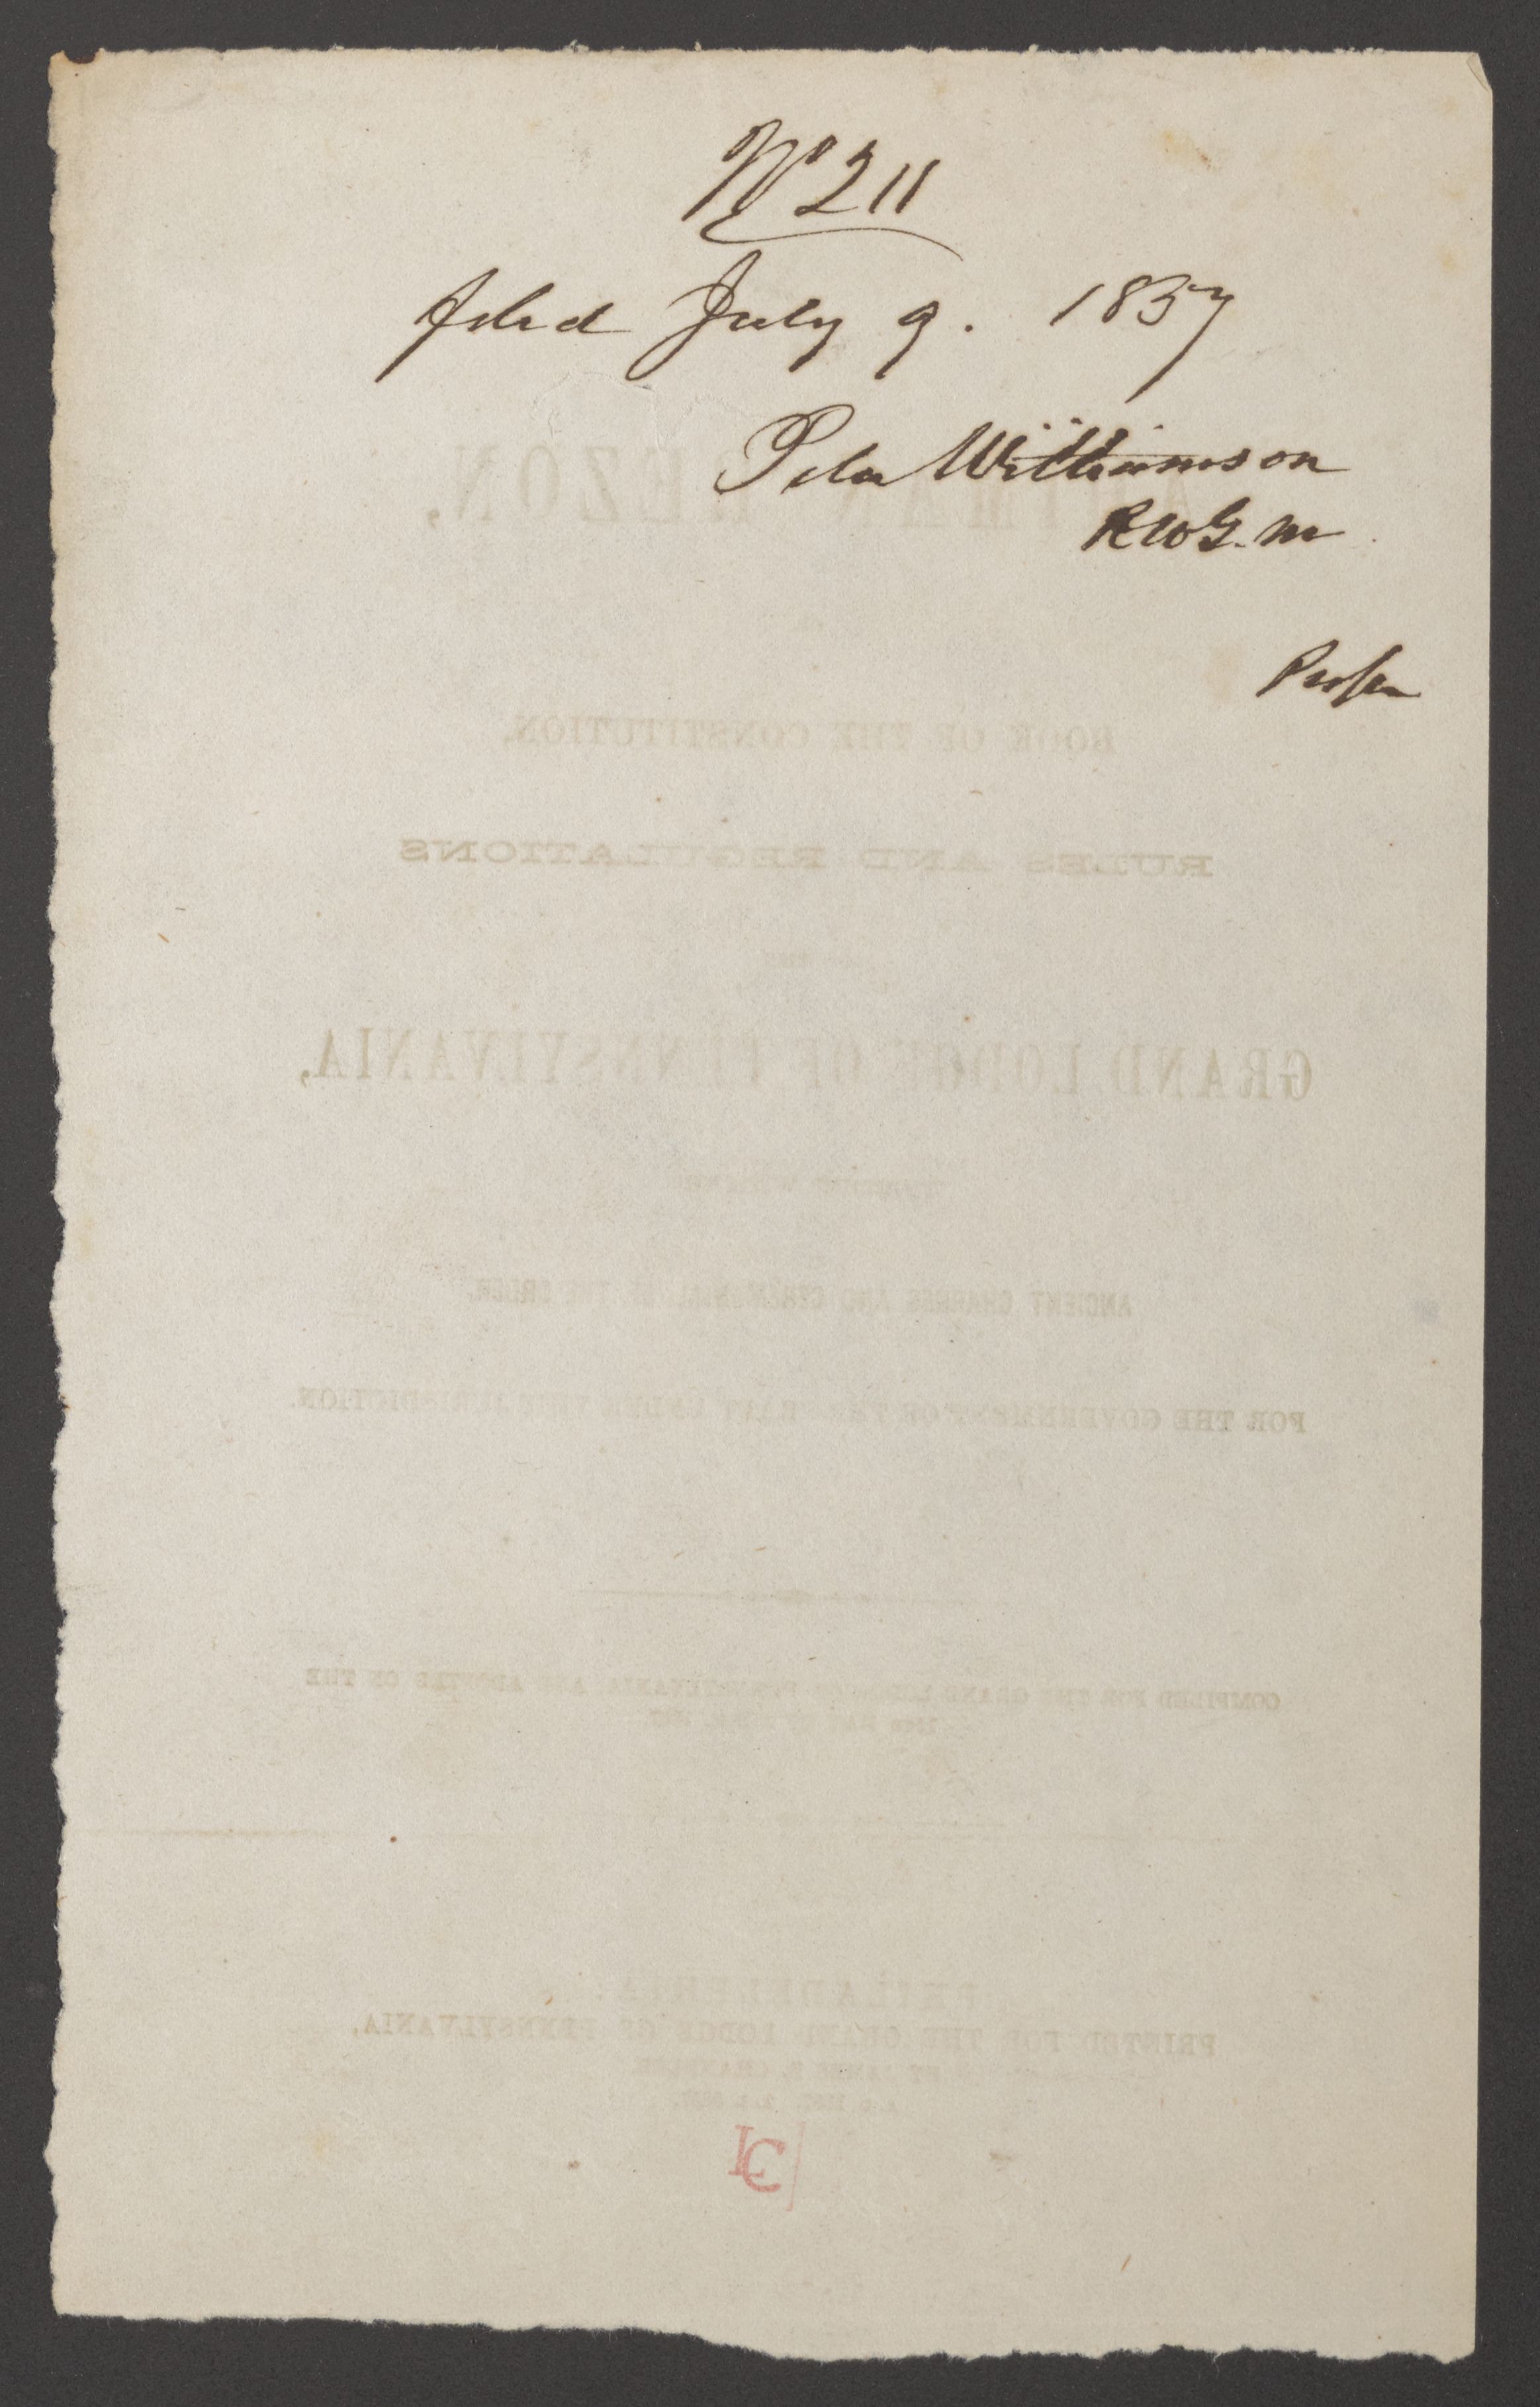 No 211
filed July 9. 1857
Peter Williamson
R W G. M
Propr
AHIMAN REZON,
BOOK OF THE CONSTITUTION,
RULES AND REGULATIONS
GRAND LODGE OF PENNSYLVANIA,
TOGETHER WITH THE
ANCIENT CHARGES AND CEREMONIAL OF THE ORDER,
FOR THE GOVERNMENT OF THE CRAFT UNDER THIS JURISDICTION.
COMPILED FOR THE GRAND LODGE OF PENNSYLVANIA AND ADOPTED ON THE
PHILADELPHIA:
PRINTED FOR THE GRAND LODGE OF PENNSYLVANIA,